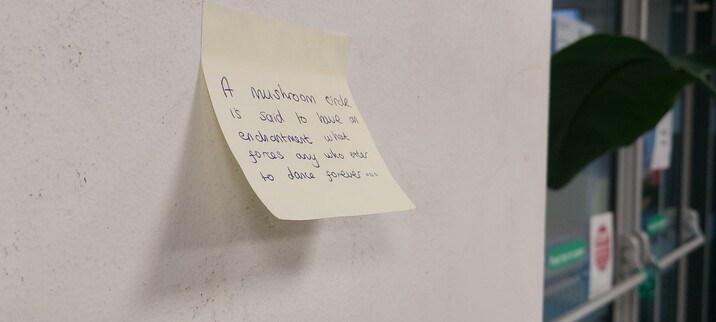 A mushroom circle
is said to have an
enchantment what
forces any who enter
to dance forever...